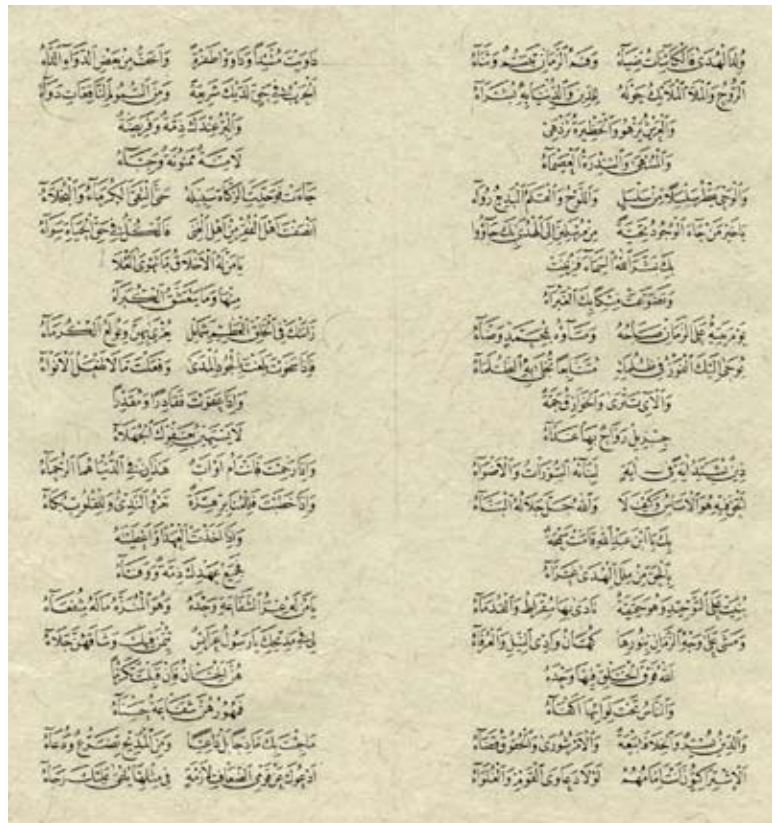 وُلِدَ الْهُدَى فَالْكَائِنَاتُ ضِيَاءُ وَفَمُ الزَّمَانِ تَبَسُّمٌ وَثَنَاءُ
الرُّوحُ وَالْمَلَأُ الْمَلَائِكُ حَوْلَهُ لِلدِّينِ وَالدُّنْيَا بِهِ بُشَرَاءُ
وَالْعَرْشُ يَزْهُو وَالْحَظِيرَةُ تَزْدَهِي
وَالْمُنْتَهَى وَالسِّدْرَةُ الْعَصْمَاءُ
وَالْوَحْيُ يَقْطُرُ سَلْسَلًا مِنْ سَلْسَلٍ وَاللَّوْحُ وَالْقَلَمُ الْبَدِيعُ رُوَاءُ
يَا خَيْرَ مَنْ جَاءَ الْوُجُودَ تَحِيَّةً مِنْ مُرْسَلِينَ إِلَى الْهُدَى بِكَ جَاؤُوا
بِكَ بَشَّرَ اللهُ السَّمَاءَ فَزُيِّنَتْ
وَتَضَوَّعَتْ مِسْكًا بِكَ الْغَبْرَاءُ
يَوْمٌ يَتِيهُ عَلَى الزَّمَانِ صَبَاحُهُ وَمَسَاؤُهُ بِمُحَمَّدٍ وَضَّاءُ
يُوحِي إِلَيْكَ الْفَوْزُ فِي ظُلُمَاتِهِ مُتَتَابِعًا تُجْلَى بِهِ الظَّلْمَاءُ
وَالْآيُ تَتْرَى وَالْخَوَارِقُ جَمَّةٌ
جِبْرِيلُ رَوَّاحٌ بِهَا غَدَّاءُ
دِينٌ يُشَيَّدُ آيَةً فِي آيَةٍ لَبِنَاتُهُ السُّورَاتُ وَالْأَضْوَاءُ
الْحَقُّ فِيهِ هُوَ الْأَسَاسُ وَكَيْفَ لَا وَاللهُ جَلَّ جَلَالُهُ الْبَنَّاءُ
بِكَ يَا ابْنَ عَبْدِ اللهِ قَامَتْ سَمْحَةٌ
بِالْحَقِّ مِنْ مِلَلِ الْهُدَى غَرَّاءُ
بُنِيَتْ عَلَى التَّوْحِيدِ وَهُوَ حَقِيقَةٌ نَادَى بِهَا سُقْرَاطُ وَالْقُدَمَاءُ
وَمَشَى عَلَى وَجْهِ الزَّمَانِ بِنُورِهَا كُهَّانُ وَادِي النِّيلِ وَالْعُرَفَاءُ
اللهُ فَوْقَ الْخَلْقِ فِيهَا وَحْدَهُ
وَالنَّاسُ تَحْتَ لِوَائِهَا أَكْفَاءُ
وَالدِّينُ يُسْرٌ وَالْخِلَافَةُ بَيْعَةٌ وَالْأَمْرُ شُورَى وَالْحُقُوقُ قَضَاءُ
الْإِشْتِرَاكِيُّونَ أَنْتَ أَمَامَهُمْ لَوْلَا دَعَاوَى الْقَوْمِ وَالْغُلَوَاءُ
دَاوَيْتَ مُتَّئِدًا وَدَاوَوْا طَفْرَةً وَأَخَفُّ مِنْ بَعْضِ الدَّوَاءِ الدَّاءُ
الْحَرْبُ فِي حَقٍّ لَدَيْكَ شَرِيعَةٌ وَمِنَ السُّمُومِ النَّاقِعَاتِ دَوَاءُ
وَالْبِرُّ عِنْدَكَ ذِمَّةٌ وَفَرِيضَةٌ
لَا مِنَّةٌ مَمْنُونَةٌ وَجِبَاءُ
جَاءَتْ فَوَحَّدَتِ الزَّكَاةُ سَبِيلَهُ حَتَّى الْتَقَى الْكُرَمَاءُ وَالْبُخَلَاءُ
أَنْصَفْتَ أَهْلَ الْفَقْرِ مِنْ أَهْلِ الْغِنَى فَالْكُلُّ فِي حَقِّ الْحَيَاةِ سَوَاءُ
يَا مَنْ لَهُ الْأَخْلَاقُ مَا تَهْوَى الْعُلَا
مِنْهَا وَمَا يَتَعَشَّقُ الْكُبَرَاءُ
زَانَتْكَ فِي الْخُلُقِ الْعَظِيمِ شَمَائِلٌ يُغْرَى بِهِنَّ وَيُولَعُ الْكُرَمَاءُ
فَإِذَا سَخَوْتَ بَلَغْتَ بِالْجُودِ الْمَدَى وَفَعَلْتَ مَا لَا تَفْعَلُ الْأَنْوَاءُ
وَإِذَا عَفَوْتَ فَقَادِرًا وَمُقَدَّرًا
لَا يَسْتَهِينُ بِعَفْوِكَ الْجُهَلَاءُ
وَإِذَا رَحِمْتَ فَأَنْتَ أُمٌّ أَوْ أَبٌ هَذَانِ فِي الدُّنْيَا هُمَا الرُّحَمَاءُ
وَإِذَا خَطَبْتَ فَلِلْمَنَابِرِ هِزَّةٌ تَعْرُو النَّدِيَّ وَلِلْقُلُوبِ بُكَاءُ
وَإِذَا أَخَذْتَ الْعَهْدَ أَوْ أَعْطَيْتَهُ
فَجَمِيعُ عَهْدِكَ ذِمَّةٌ وَوَفَاءُ
يَا مَنْ لَهُ عِزُّ الشَّفَاعَةِ وَحْدَهُ وَهُوَ الْمُنَزَّهُ مَا لَهُ شُفَعَاءُ
لِي فِي مَدِيحِكَ يَا رَسُولُ عَرَائِسٌ تُيِّمْنَ فِيكَ وَشَاقَهُنَّ جَلَاءُ
هُنَّ الْحِسَانُ فَإِنْ قَبِلْتَ تَكَرُّمًا
فَمُهُورُهُنَّ شَفَاعَةٌ حَسْنَاءُ
مَا جِئْتُ بَابَكَ مَادِحًا بَلْ دَاعِيًا وَمِنَ الْمَدِيحِ تَضَرُّعٌ وَدُعَاءُ
أَدْعُوكَ عَنْ قَوْمِي الضِّعَافِ لِأَزْمَةٍ فِي مِثْلِهَا يُلْقَى عَلَيْكَ رَجَاءُ